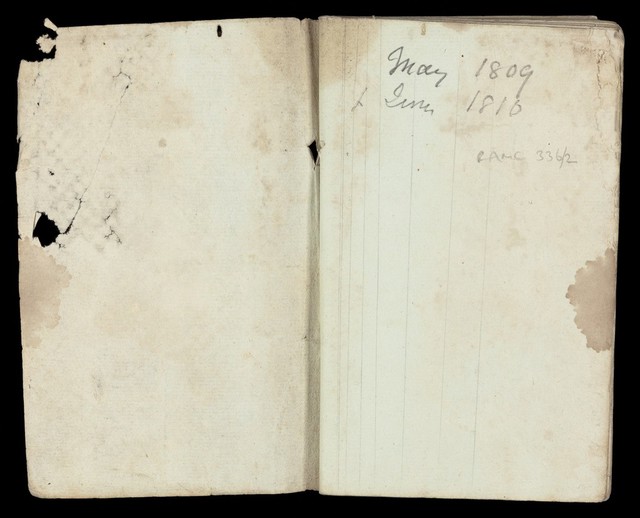 May 1809
June 1810
RAMC 336/2